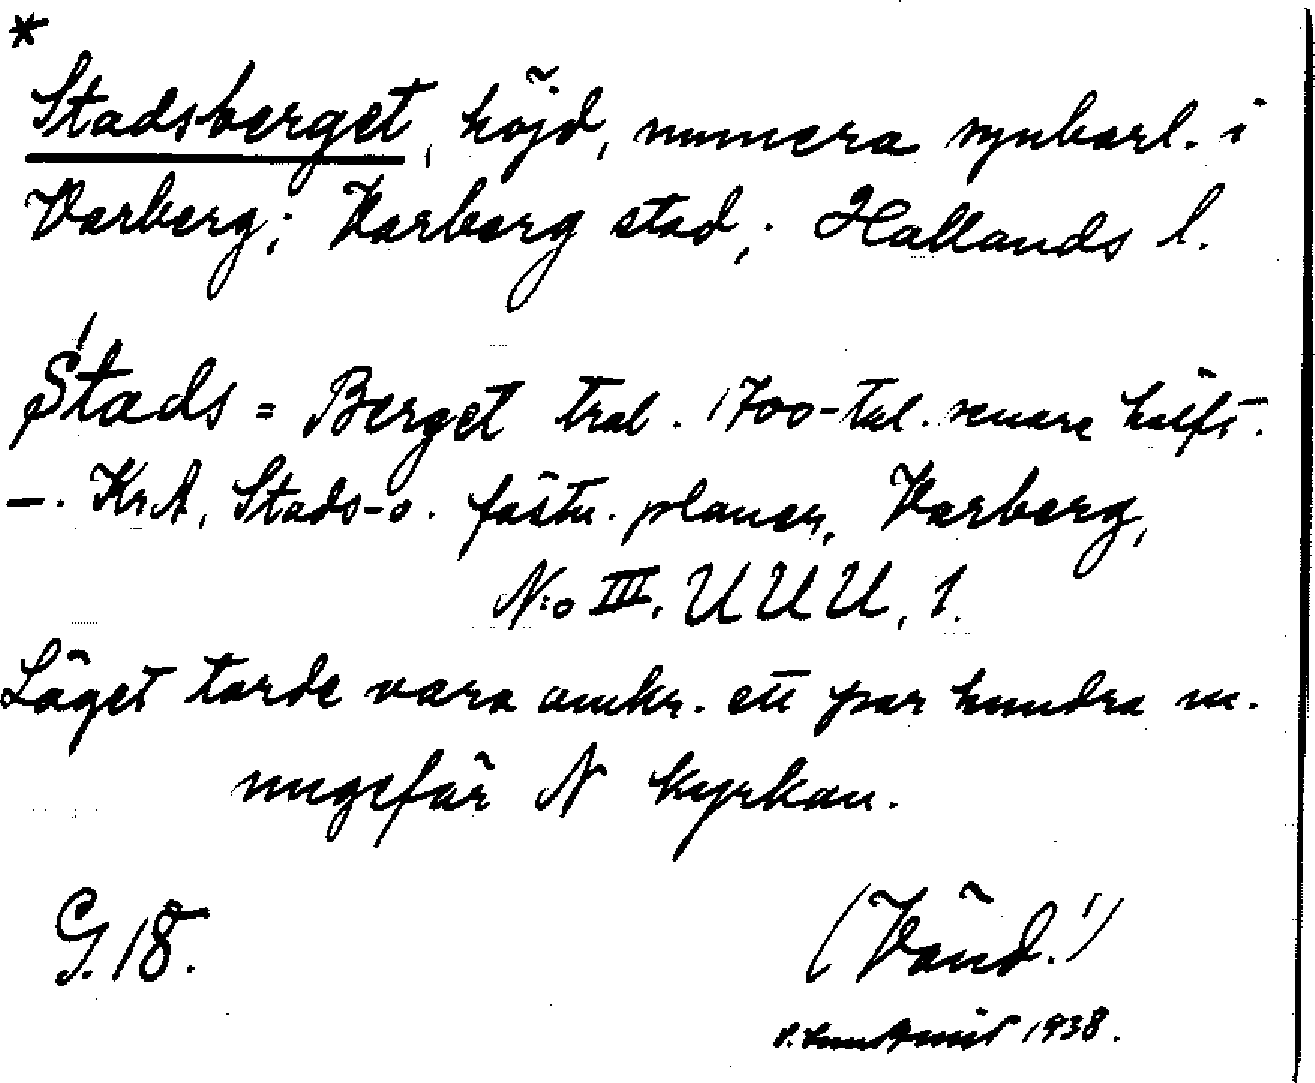 *
Stadsberget, höjd, numera synbarl. i
Varberg; Varberg stad; Hallands l.
Stads=Berget trol. 1700-tal. senare hälft.
—. KrA, Stads- o. fästn. planer, Varberg,
N:o III. UUU, 1.
Läget torde vara omkr. ett par hundra m.
ungefär N kyrkan.
G. 18.
(Vänd!)
1938.